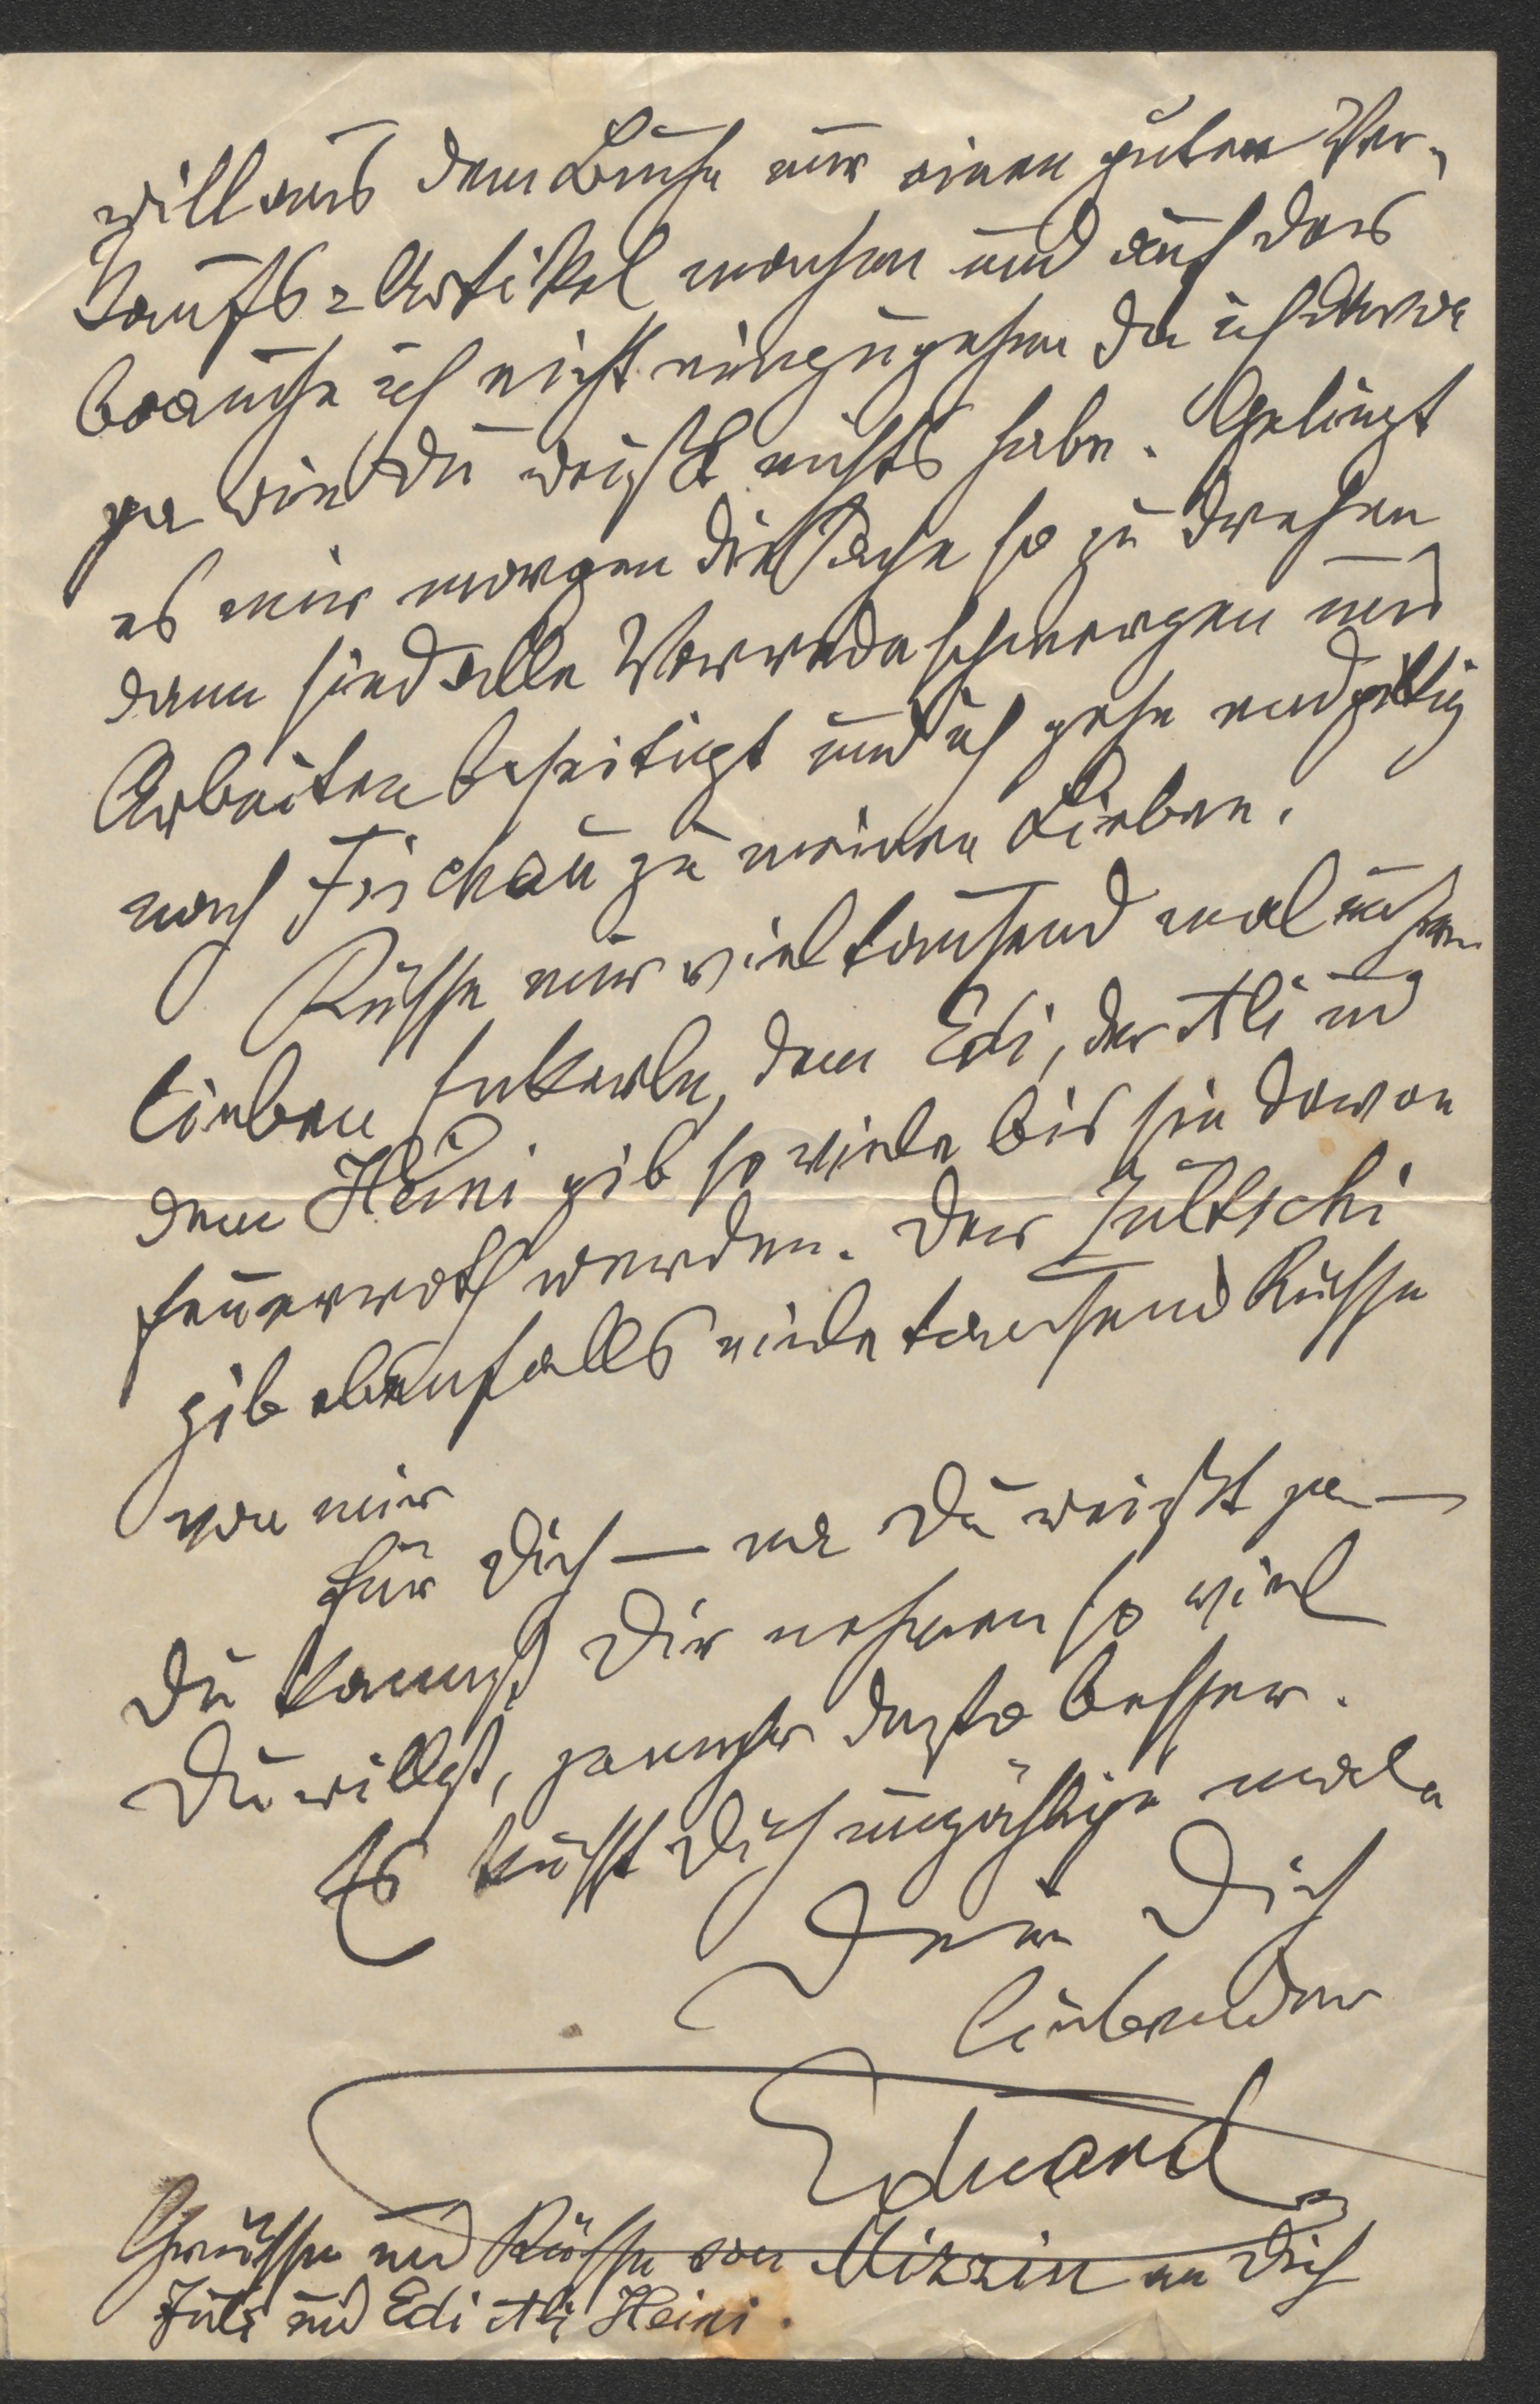 will aus dem Buche nur einen guten Ver-
kaufs-Artikel machen und auf das
brauche ich nicht einzugehen da ich davon
ja wie Du weißt nichts habe. Gelingt
es mir morgen die Sache so zu drehen
dann sind alle Vorrede und
Arbeiten beseitigt und ich gehe endgiltig
nach Frischau zu meinen Lieben.
Küsse mir viel tausend mal unsern
lieben dem Edi, der Ali und
dem Heini gib so viele bis sie davon
feuerroth werden. Der Jultschi
gib ebenfalls viele tausend Küsse
von mir
für Dich — na Du weißt ja —
Du kannst Dir nehmen so viel
Du willst, je mehr desto besser.
Es küsst Dich unzählige male
Dein Dich
liebender
Eduard
Grüsse und Küsse von Mizzin an Dich
Juli und Edi Ali Heini.